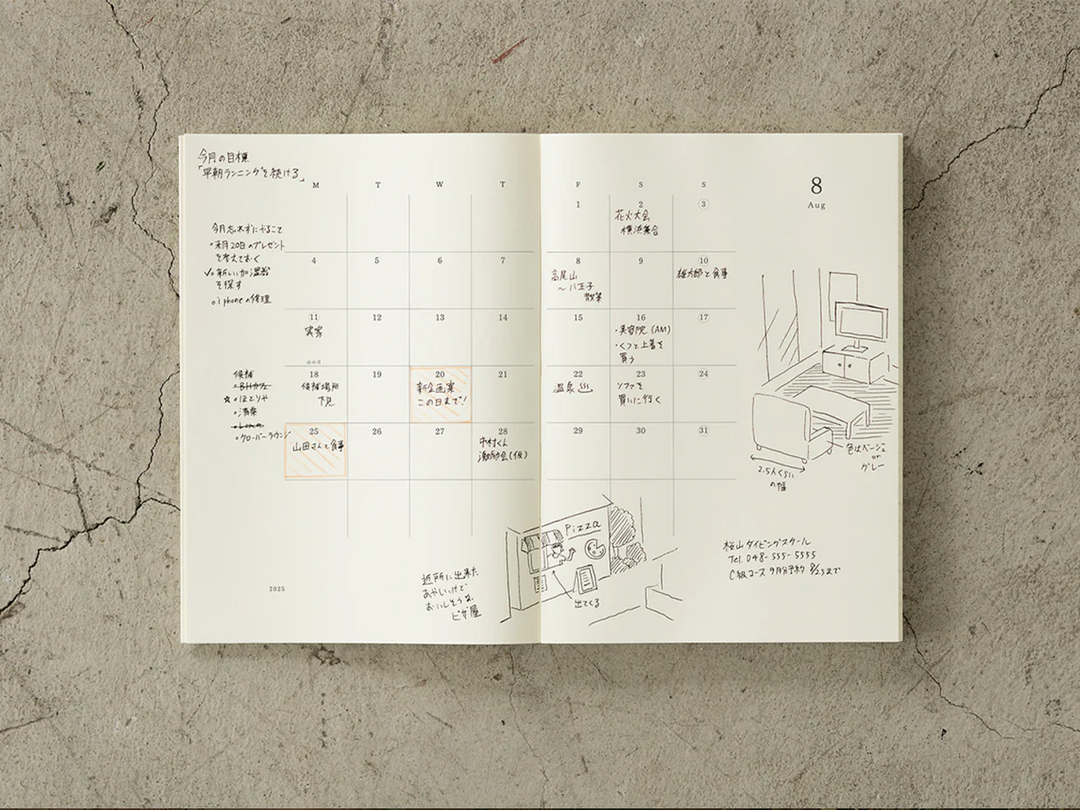 今月の目標
「早朝ランニングを続ける」
M T W T F S S
8
Aug
今月忘れずにすること
•来月20日のプレゼント
を考えておく
✓•新しい加湿器
を探す
•iphoneの修理
1 2 3
花火大会
横浜集合
4 5 6 7 8 9 10
高尾山
〜八王子
散策
雄太郎と食事
11 12 13 14 15 16 17
実家
山の日
・美容院(AM)
・くつと上着を
買う
18 19 20 21 22 23 24
候補場所
下見
新企画案
この日まで!
温泉
ソファを
買いに行く
候補
☆•ほとりや
•クローバーラウンジ
25 26 27 28 29 30 31
山田さんと食事
中村くん
激励会(仮)
色はベージュ
or
グレー
2.5人くらい
の幅
Pizza
出てくる
近所に出来た
あやしいけど
おいしそうな
ピザ屋
桜山ダイビングスクール
Tel 048-555-5555
C級コース 9月分予約 8/25まで
2025